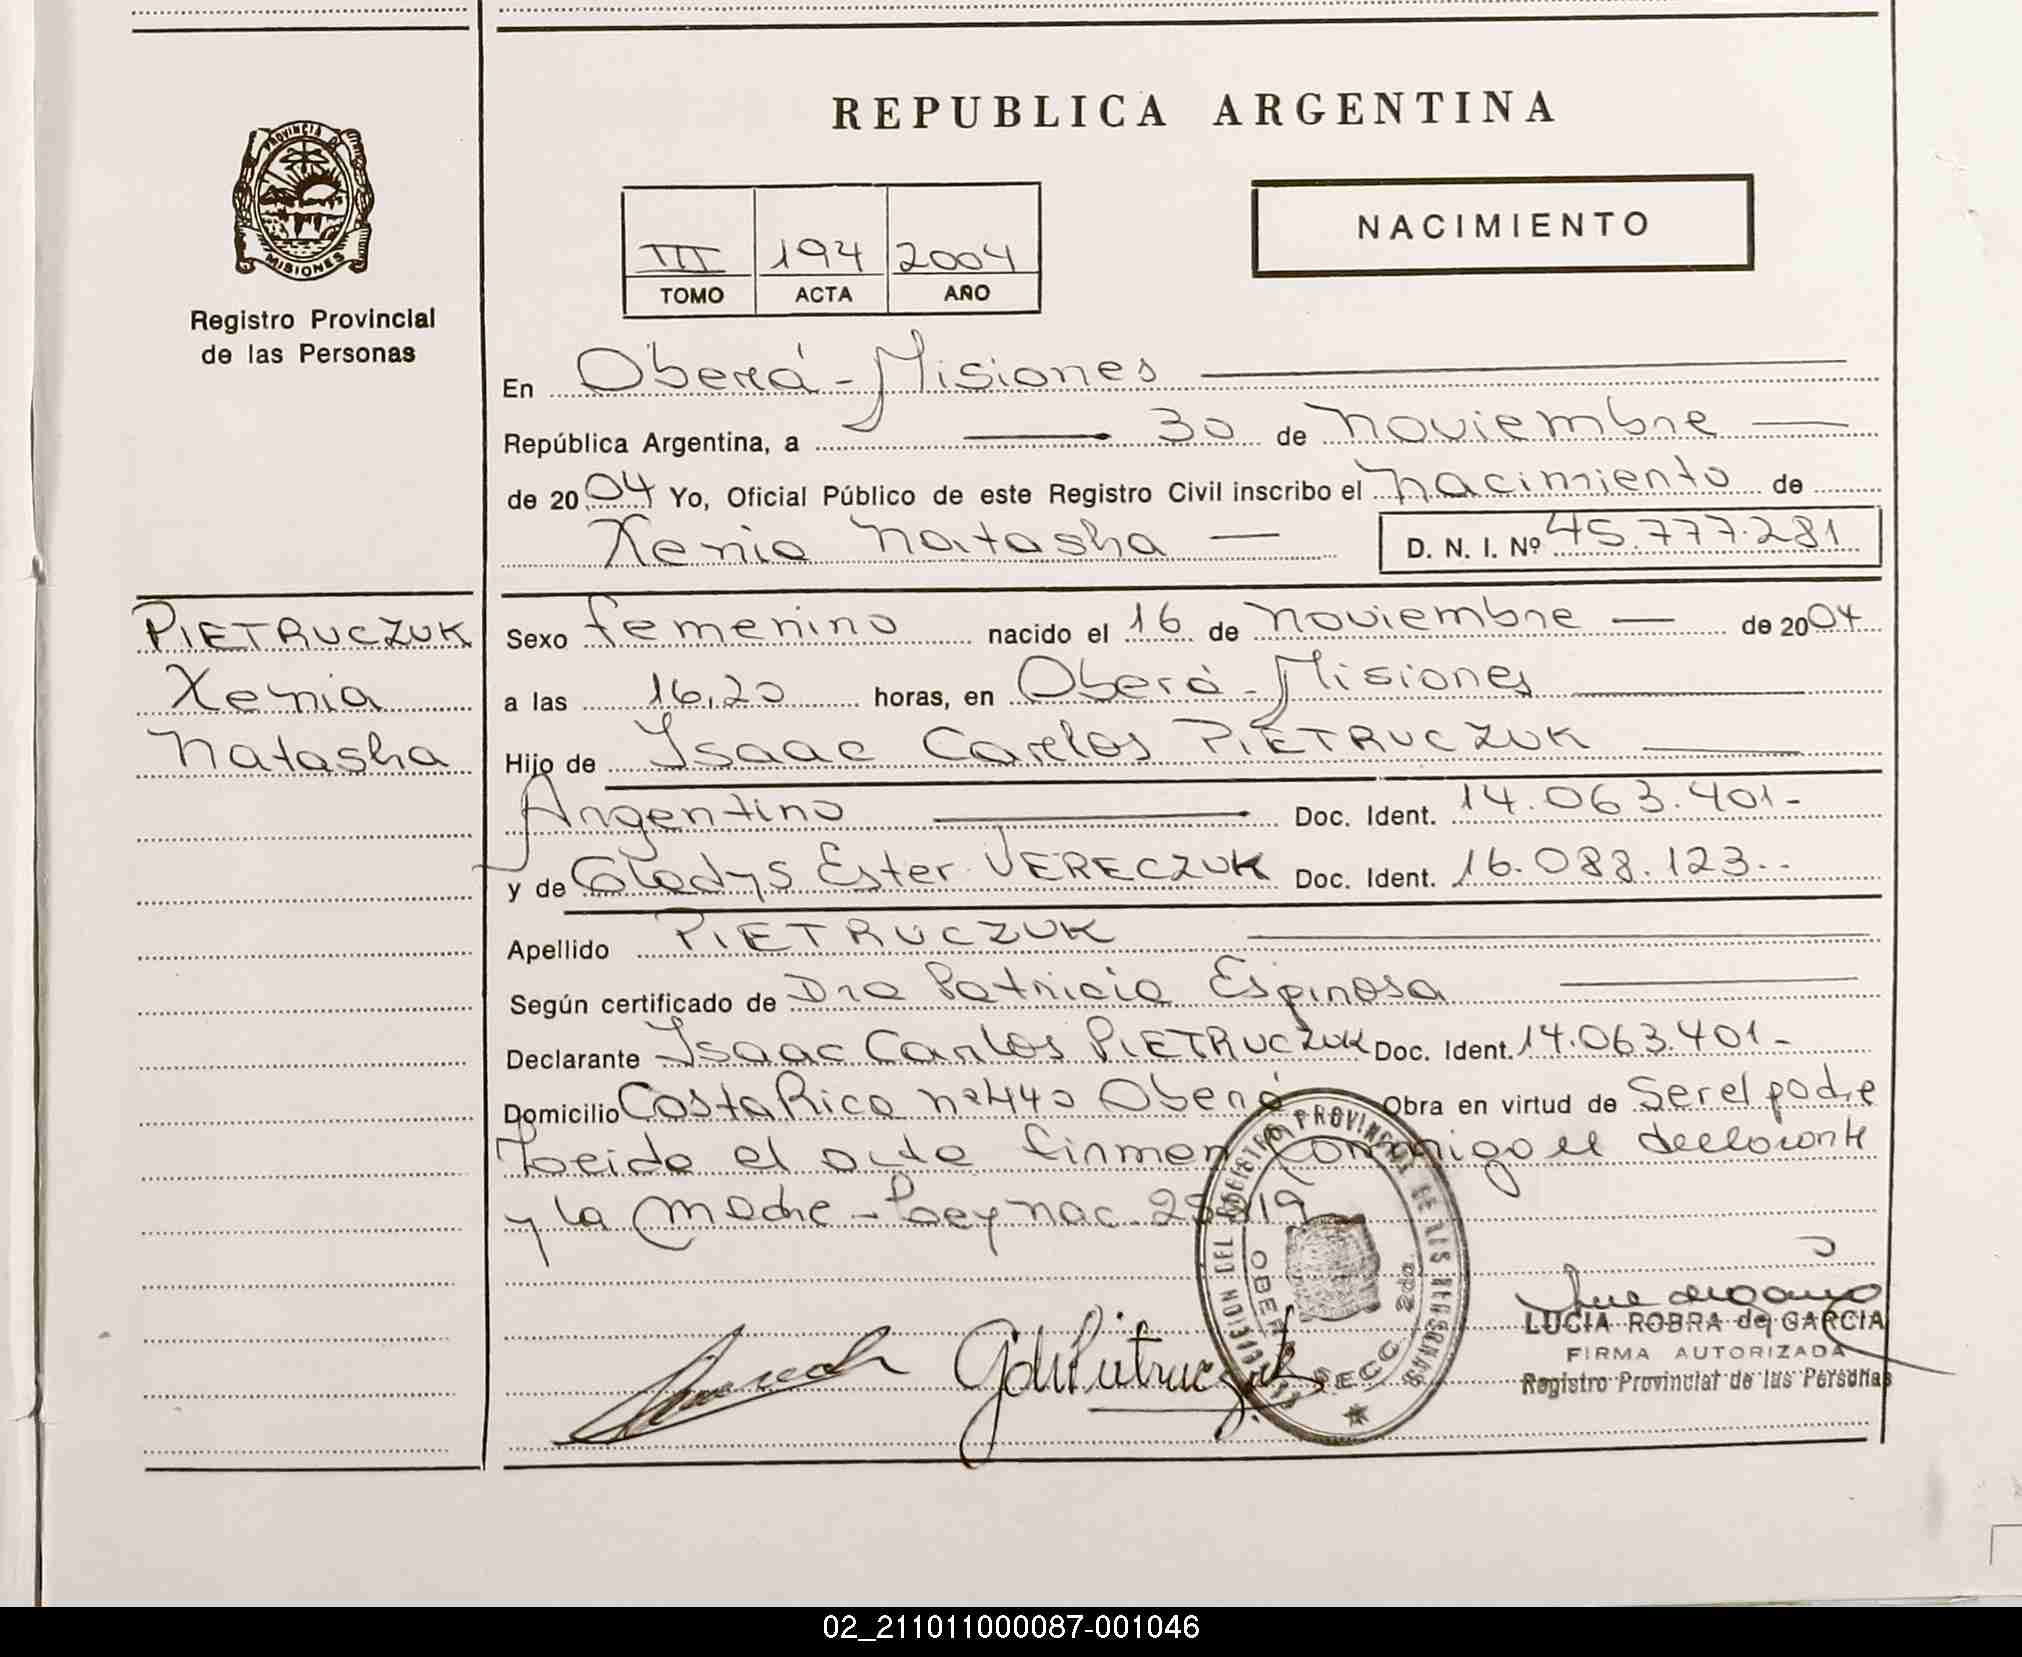 REPUBLICA ARGENTINA
PROVINCIA DE
MISIONES
Registro Provincial
de las Personas
III 194 2004
TOMO ACTA AÑO
NACIMIENTO
En Oberá - Misiones
República Argentina, a 30 de noviembre
de 2004 Yo, Oficial Público de este Registro Civil inscribo el nacimiento de
Xenia Natasha D. N. I. Nº 45.777.281
PIETRUCZUK
Xenia
Natasha
Sexo femenino nacido el 16 de noviembre de 2004
a las 16,20 horas, en Oberá - Misiones
Hijo de Isaac Carlos PIETRUCZUK
Argentino Doc. Ident. 14.063.401-
y de Gladys Ester VERECZUK Doc. Ident. 16.088.123--
Apellido PIETRUCZUK
Según certificado de Dra Patricia Espinosa
Declarante Isaac Carlos PIETRUCZUK Doc. Ident. 14.063.401-
Domicilio Costa Rica nº 440 Oberá Obra en virtud de Ser el padre
Leida el acta firman conmigo el declarante
y la madre - Ley nac.
REGISTRO PROVINCIAL DE LAS PERSONAS
OBERA SECC 2da.
G de Pietruczuk
LUCIA ROBRA de GARCIA
FIRMA AUTORIZADA
Registro Provincial de las Personas
02_211011000087-001046